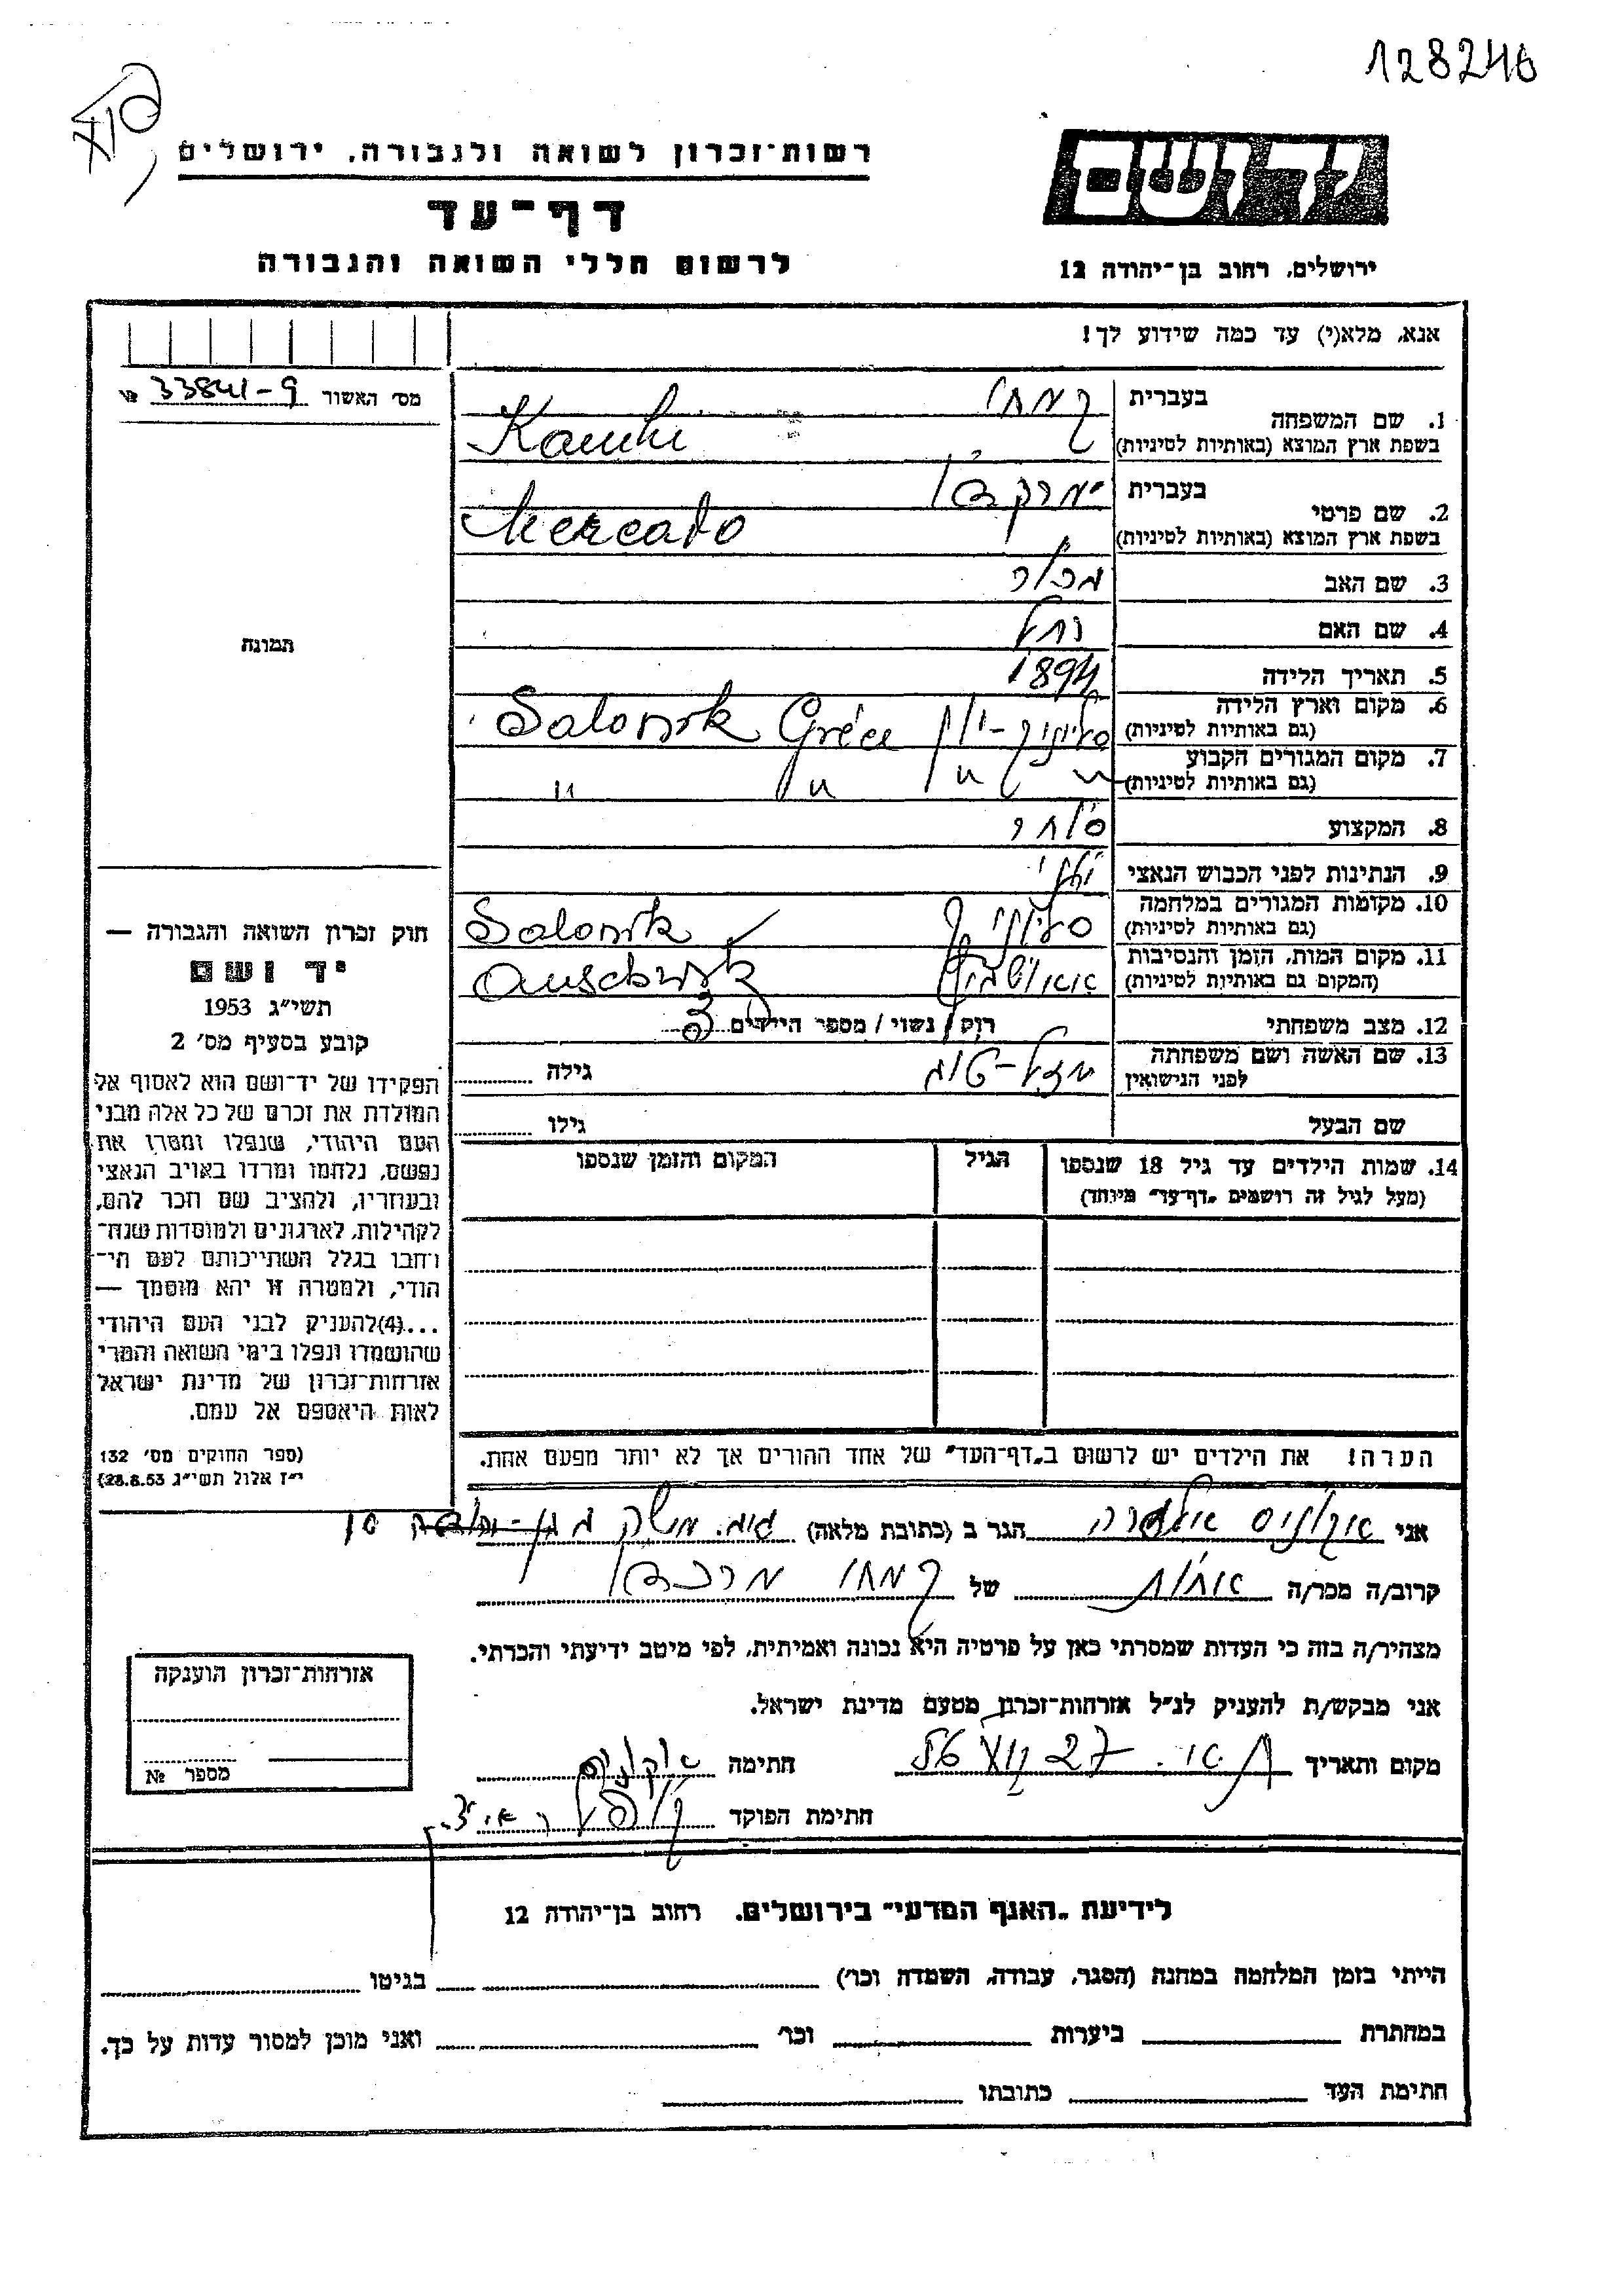 128246
רשות־זכרון לשואה ולגבורה, ירושלים
יד ושם
דף־עד
לרשום חללי השואה והגבורה
ירושלים, רחוב בן־יהודה 12
אנא, מלא(י) עד כמה שידוע לך!
מס׳ האשור 33841-9 №
1. שם המשפחה
בעברית קמחי
בשפת ארץ המוצא (באותיות לטיניות) Kamhi
2. שם פרטי
בעברית מרקדו
בשפת ארץ המוצא (באותיות לטיניות) Mercado
3. שם האב
4. שם האם רחל
5. תאריך הלידה 1894
6. מקום וארץ הלידה
(גם באותיות לטיניות) סלוניק - יון Salonik Gréce
7. מקום המגורים הקבוע
(גם באותיות לטיניות) " " " "
8. המקצוע סוחר
9. הנתינות לפני הכבוש הנאצי יוני
10. מקומות המגורים במלחמה
(גם באותיות לטיניות) סלוניק Salonik
11. מקום המות, הזמן והנסיבות
(המקום גם באותיות לטיניות) Auschwik
12. מצב משפחתי רוק / נשוי / מספר הילדים 3
13. שם האשה ושם משפחתה
לפני הנישואין מזל-טוב גילה
שם הבעל גילו
14. שמות הילדים עד גיל 18 שנספו
(מעל לגיל זה רושמים „דף־עד״ מיוחד)
הגיל
המקום והזמן שנספו
הערה! את הילדים יש לרשום ב„דף־העד״ של אחד ההורים אך לא יותר מפעם אחת.
תמונה
חוק זכרון השואה והגבורה —
יד ושם
תשי״ג 1953
קובע בסעיף מס׳ 2
תפקידו של יד־ושם הוא לאסוף אל
המולדת את זכרם של כל אלה מבני
העם היהודי, שנפלו ומסרו את
נפשם, נלחמו ומרדו באויב הנאצי
ובעוזריו, ולהציב שם וזכר להם,
לקהילות, לארגונים ולמוסדות שנח־
רבו בגלל השתייכותם לעם הי־
הודי, ולמטרה זו יהא מוסמך —
...(4)להעניק לבני העם היהודי
שהושמדו ונפלו בימי השואה והמרי
אזרחות־זכרון של מדינת ישראל
לאות היאספם אל עמם.
(ספר החוקים מס׳ 132
י״ז אלול תשי״ג 28.8.53)
אני הגר ב (כתובת מלאה)
קרוב/ה מכר/ה אחות של קמחי מרכדו
מצהיר/ה בזה כי העדות שמסרתי כאן על פרטיה היא נכונה ואמיתית, לפי מיטב ידיעתי והכרתי.
אני מבקש/ת להעניק לנ״ל אזרחות־זכרון מטעם מדינת ישראל.
מקום ותאריך חתימה
חתימת הפוקד
אזרחות־זכרון הוענקה
מספר №
לידיעת „האגף המדעי״ בירושלים, רחוב בן־יהודה 12
הייתי בזמן המלחמה במחנה (הסגר, עבודה, השמדה וכו׳) בגיטו
במחתרת ביערות וכו׳ ואני מוכן למסור עדות על כך.
חתימת העד כתובתו